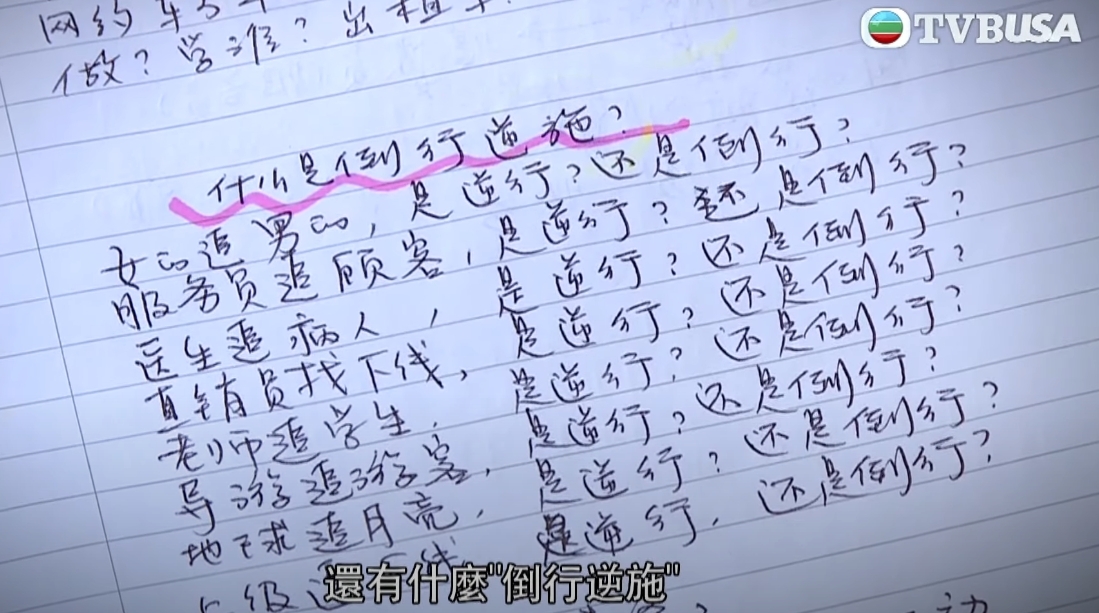 TVBUSA
网约车
做？学谁？出
什么是倒行逆施？
女的追男的，是逆行？还是倒行？
服务员追顾客，是逆行？还是倒行？
医生追病人，是逆行？还是倒行？
直销员找下线，是逆行？还是倒行？
老师追学生，是逆行？还是倒行？
导游追游客，是逆行？还是倒行？
地球追月亮，是逆行？还是倒行？
级 是逆行，还是倒行？
還有什麼"倒行逆施"